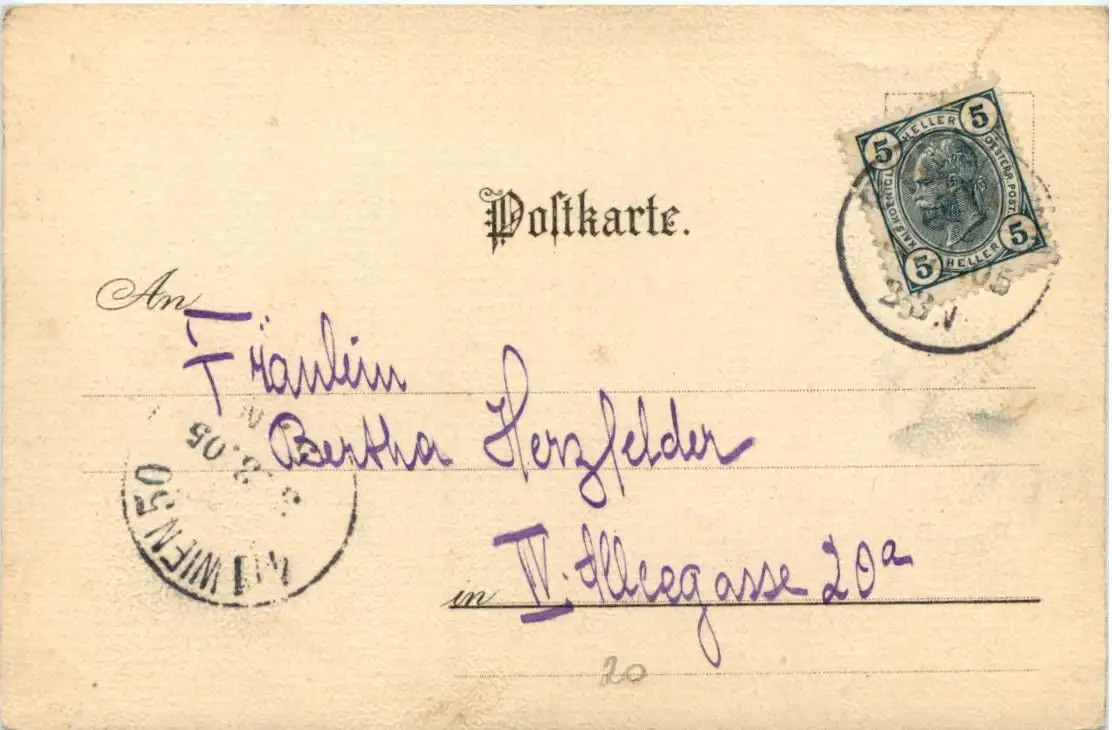 Postkarte.
5 HELLER 5
KAIS.KOENIGL. OESTERR.POST.
5 HELLER 5
05
An
Fräulein
Bertha Herzfelder
in IV. Alleegasse 20a
4/1 WIEN 50
3.05
20